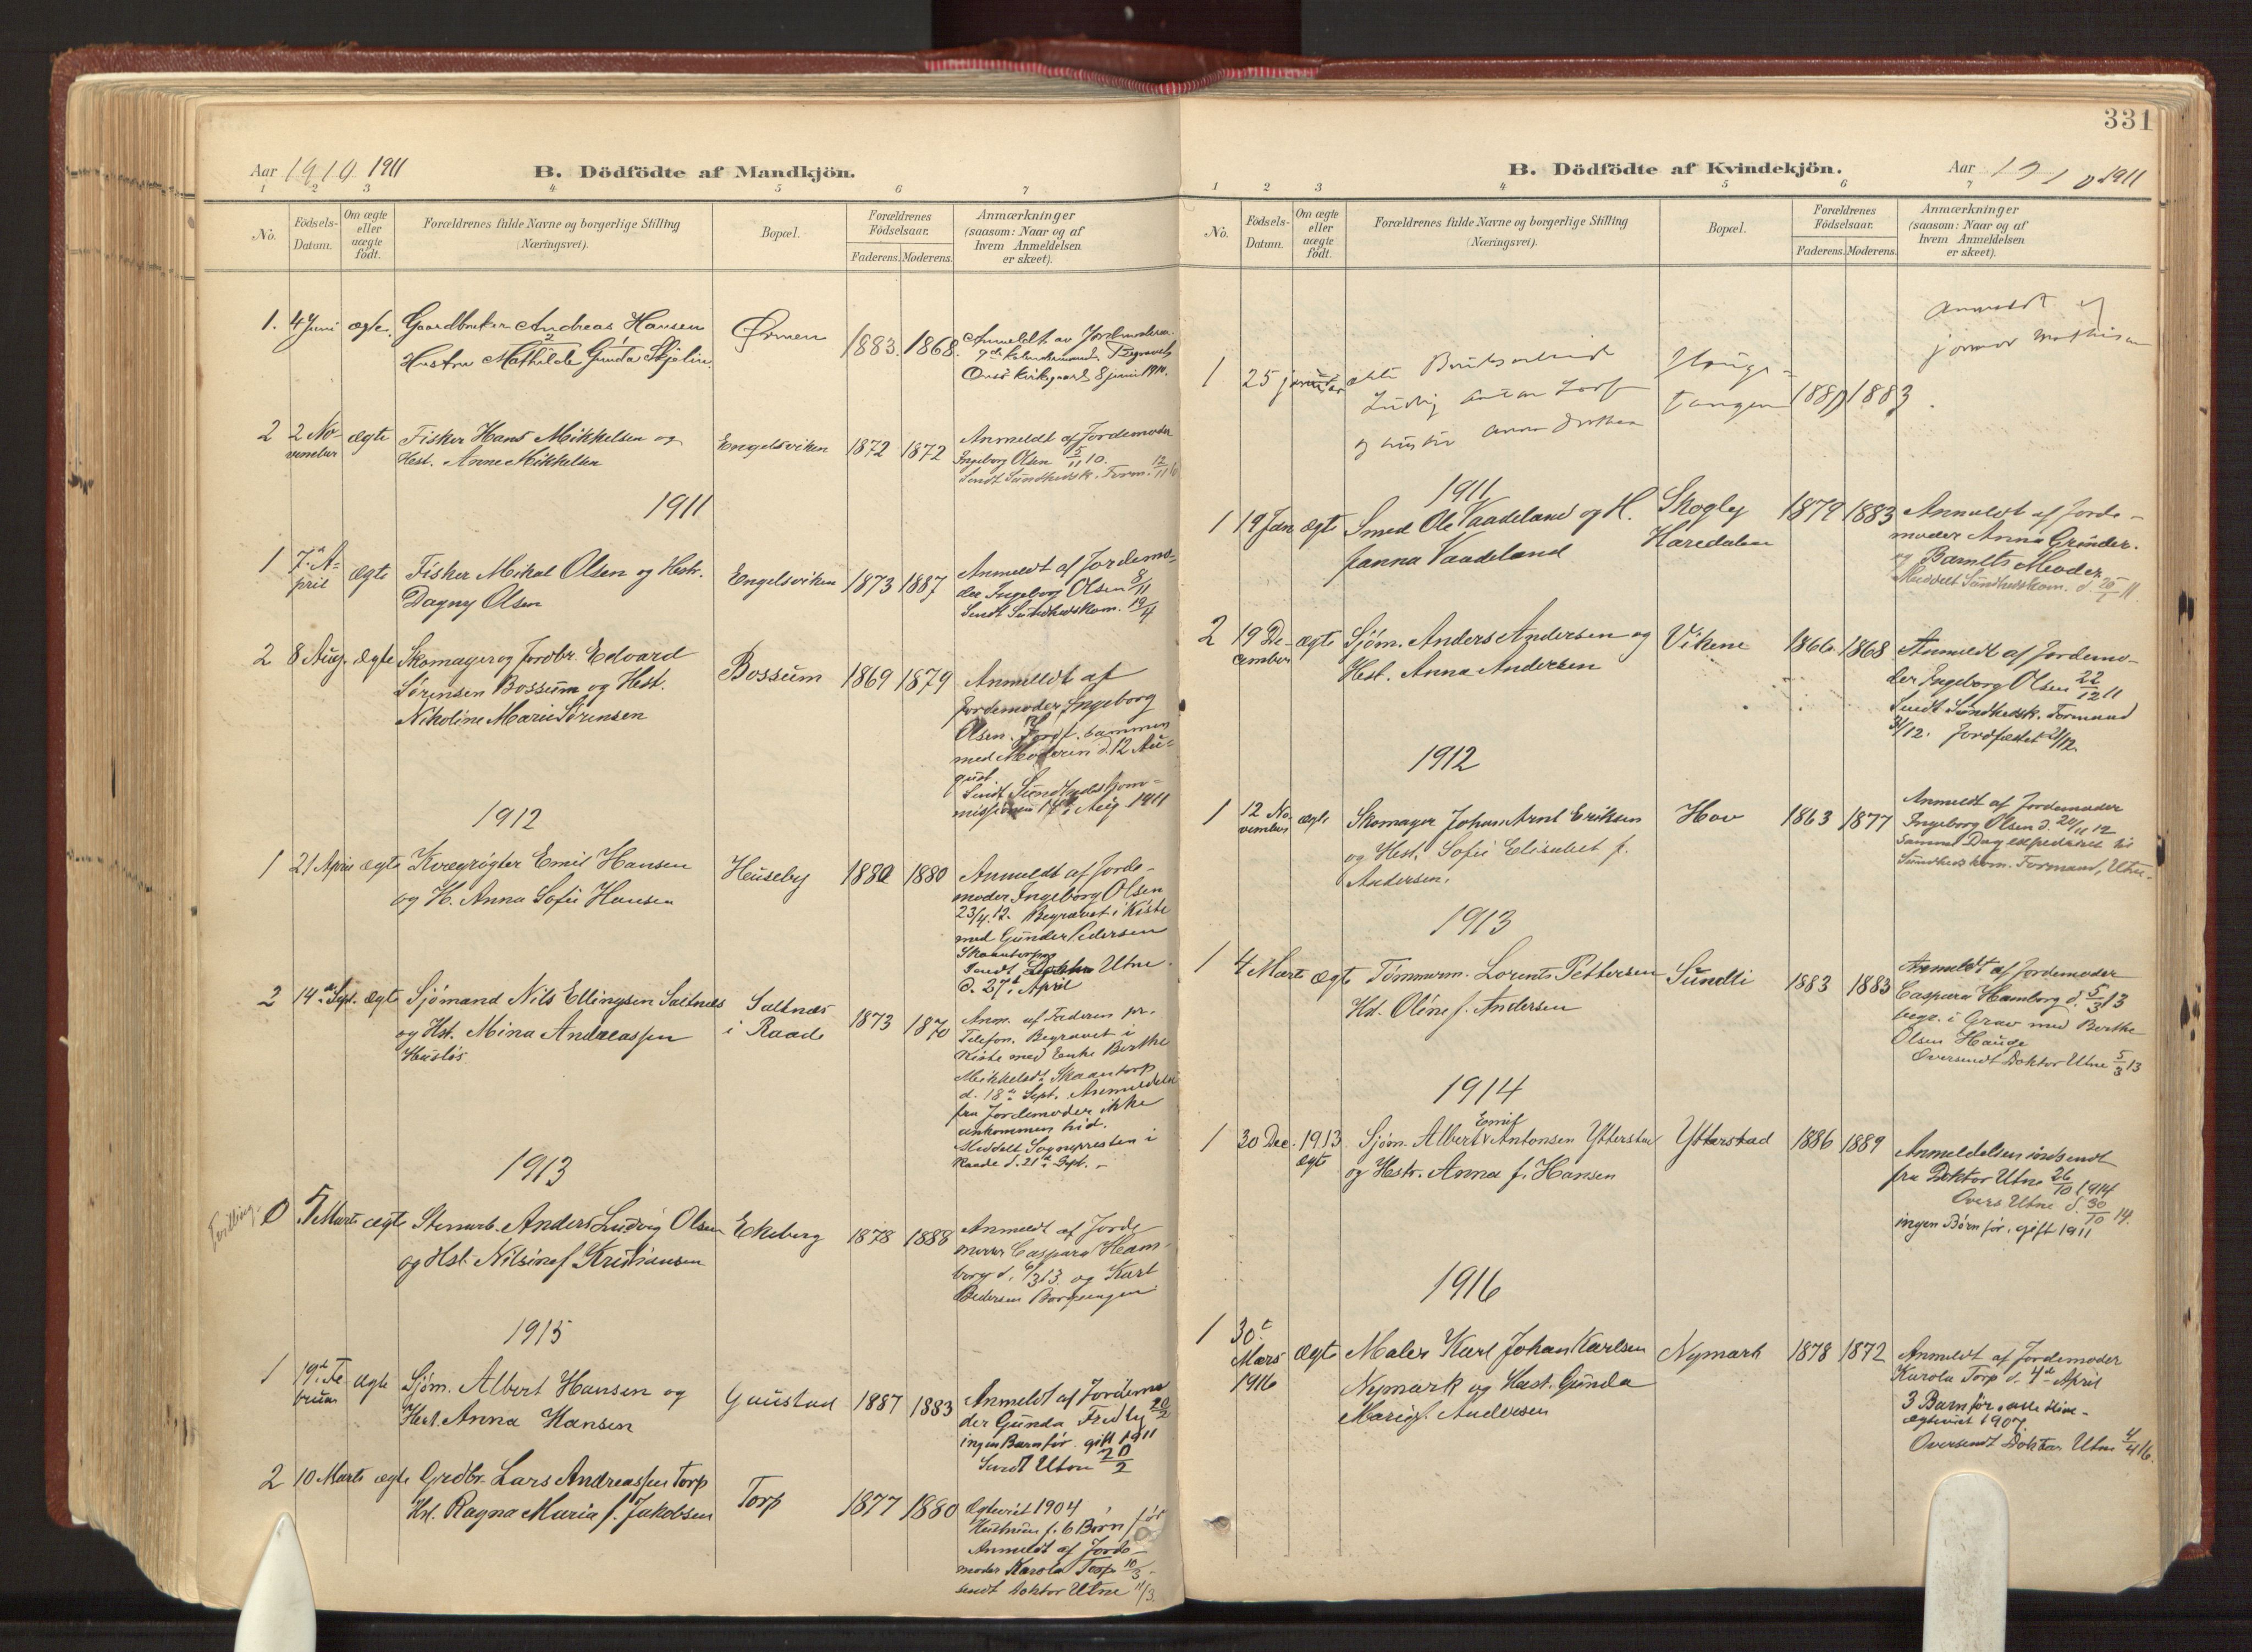 Aar 1910 1911
B. Dödfödte af Mandkjön.
1 2 3 4 5 6 7
No.
Födsels-
Datum.
Om ægte
eller
uægte
födt.
Forældrenes fulde Navne og borgerlige Stilling
(Næringsvei).
Bopæl.
Forældrenes
Födselsaar.
Faderens. Moderens.
Anmærkninger
(saasom: Naar og af
hvem Anmeldelsen
er skeet).
1. 4 Juni ægte. Gaardbruker Andreas Hansen
Hustru Mathilde Gunda Skjelin.
Ørmen 1883. 1868.
Anmeldt av Jordemoderen
Begravet
Onsö Kirkegaard 8 juni 1910.
2 2 No-
vember
ægte Fisker Hans Mikkelsen og
Hst. Anne Mikkelsen
Engelsviken 1872 1872
Anmeldt af Jordemoder
Ingeborg Olsen 5/11 10.
Sendt Sundhedsk. Form. 12/11 10
1911
1 7de A-
pril
ægte Fisker Mikal Olsen og Hstr.
Dagny Olsen
Engelsviken 1873 1887
Anmeldt af Jordemo-
der Ingeborg Olsen 8/11
Sendt Sundhedskom. 19/4
2 8 Aug. ægte Skomager og Jordbr. Edvard
Sørensen Bossum og Hst.
Nikoline Marie Sørensen
Bossum 1869 1879
Anmeldt af
Jordemoder Ingeborg
Olsen. Jordf. sammen
med Moderen d. 12 Au-
gust.
Sendt Sundhedskom-
missionen 17de Aug. 1911
1912
1 21 April ægte Kvægrøgter Emil Hansen
og H. Anna Sofie Hansen
Huseby 1880 1880
Anmeldt af Jorde-
moder Ingeborg Olsen
23/4 12. Begravet i Kiste
med Gunder Pedersen
Skaantorp
Sendt Doktor Utne.
d. 27de April
2 14de Sept. ægte Sjömand Nils Ellingsen Saltnæs
og Hst. Mina Andreassen
Husløs.
Saltnæs
i Raade
1873 1870
Anm. af Faderen pr.
Telefon. Begravet i
Kiste med Enke Berthe
Mikkelsdt. Skaantorp
d. 18de Sept. Anmeldelse
fra Jordemoder ikke
ankommen hid.
Meddelt Sognepresten i
Raade d. 21de Sept. -
1913
Tvilling.
0 5 Marts ægte Stenarb. Anders Ludvig Olsen
og Hst. Nilsine f. Kristiansen
Ekeberg 1878 1888
Anmeldt af Jorde
moder Caspara Ham-
borg d. 6/3 13. og Karl
Pedersen Borgeengen
1915
1 19de Fe
bruar
ægte Sjöm. Albert Hansen og
Hst. Anna Hansen
Gaustad 1887 1883
Anmeldt af Jordemo
der Gunda Fredly 20/2
ingen Barn før. gift 1911
Sendt Utne 20/2
2 10 Marts ægte Grdbr. Lars Andreassen Torp
Hst. Ragna Maria f. Jakobsen
Torp 1877 1880
Ægteviet 1904
Hustruen f. 6 Børn før
Anmeldt af Jorde-
moder Karola Torp 10/3 -
sendt Doktor Utne 11/3.
331
B. Dödfödte af Kvindekjön.
Aar 1910 1911
1 2 3 4 5 6 7
No.
Födsels-
Datum.
Om ægte
eller
uægte
födt.
Forældrenes fulde Navne og borgerlige Stilling
(Næringsvei).
Bopæl.
Forældrenes
Födselsaar.
Faderens. Moderens.
Anmærkninger
(saasom: Naar og af
hvem Anmeldelsen
er skeet).
1 25 januar ekte Bruksarbeid
Ludvig Anton
og hustru Anna
tangen
1880 1883.
Anmeldt af
jormor Mathisen
1911
1 19 Jan ægte Smed Ole Vaadeland og H.
Janna Vaadeland
Skogly
Haredalen
1879 1883
Anmeldt af Jorde-
moder Anna Grinder.
og Barnets Moder.
Meddelt Sundhedskom. d. 20/1 11.
2 19 De-
cember
ægte Sjöm. Anders Andersen og
Hst. Anna Andersen
Vikene 1866. 1868
Anmeldt af Jordemo-
der Ingeborg Olsen 22/12 11
Sendt Sundhedsk. Formand
31/12. Jordfæstet 21/12.
1912
1 12 No-
vember
ægte Skomager Johan Arnt Eriksen
og Hst. Sofie Elisabet f.
Andersen.
Hov 1863 1877
Anmeldt af Jordemoder
Ingeborg Olsen d. 20/11 12
Samme Dag expederet til
Sundhedskom. Formand, Utne.
1913
1 4 Marts ægte Tömmerm. Lorents Pettersen
Hst. Oline f. Andersen
Sundli 1883 1883
Anmeldt af Jordemoder
Caspara Hamborg d. 5/3 13
begr. i Grav med Berthe
Olsen Hauge
Oversendt Doktor Utne 5/3 13
1914
1 30 Dec. 1913
ægte
Sjöm. Albert Emil Antonsen Ytterstad
og Hstr. Anna f. Hansen
Ytterstad 1886 1889
Anmeldelsen indsendt
fra Doktor Utne 26/10 1914
Overs Utne d. 30/10 14.
ingen Børn før. gift 1911
1916
1 30te
Mars
1916
ægte Maler Karl Johan Karlsen
Nymark og Hust. Gunda
Marie f. Andersen
Nymark 1878 1872
Anmeldt af Jordemoder
Karola Torp d. 4de April
3 Barn før, alle i live -
ægteviet 1907.
Oversendt Doktor Utne 4/4 16.